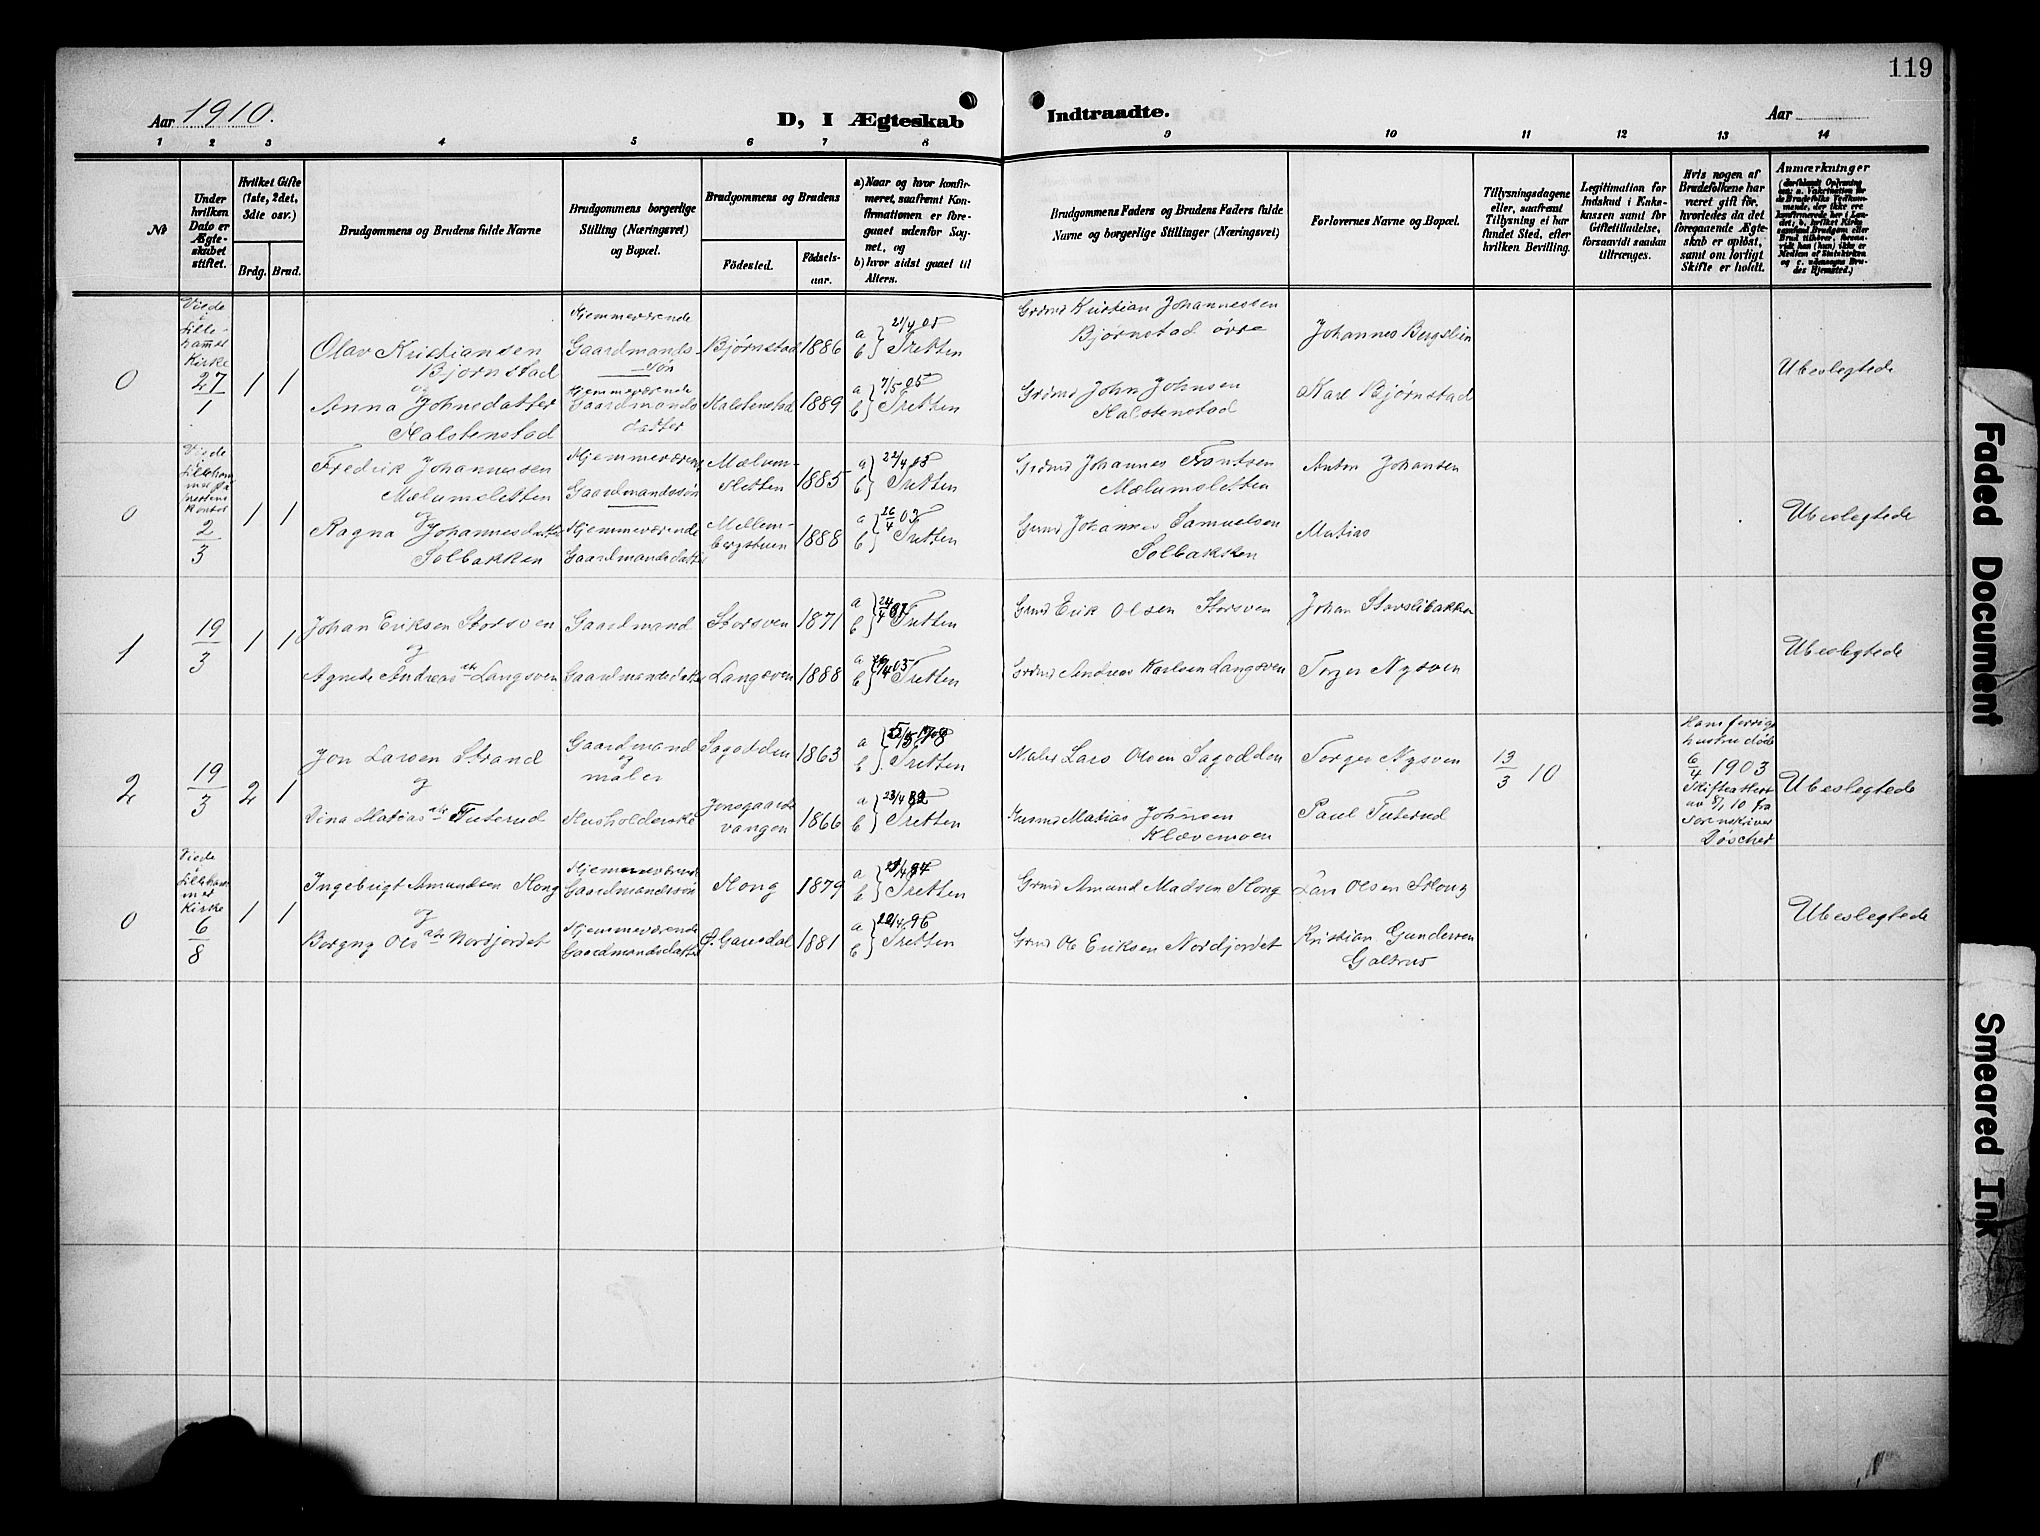 119
Aar 1910.
D, I Ægteskab
Indtraadte.
Aar
1 2 3 4 5 6 7 8 9 10 11 12 13 14
No
Under
hvilken
Dato er
Ægte-
skabet
stiftet.
Hvilket Gifte
(1ste, 2det,
3die osv.)
Brdg. Brud.
Brudgommens og Brudens fulde Navne
Brudgommens borgerlige
Stilling (Næringsvei)
og Bopæl.
Brudgommens og Brudens
Fødested.
Fødsels-
aar.
a) Naar og hvor konfir-
meret, saafremt Kon-
firmationen er fore-
gaaet udenfor Sog-
net, og
b) hvor sidst gaaet til
Alters.
Brudgommens Faders og Brudens Faders fulde
Navne og borgerlige Stillinger (Næringsvei)
Forlovernes Navne og Bopæl.
Tillysningsdagene
eller, saafremt
Tillysning ei har
fundet Sted, efter
hvilken Bevilling.
Legitimation for
Indskud i Enke-
kassen samt for
Giftetilladelse,
forsaavidt saadan
tiltrænges.
Hvis nogen af
Brudefolkene har
været gift før,
hvorledes da det
foregaaende Ægte-
skab er opløst,
samt om lovligt
Skifte er holdt.
Anmærkninger
0
Viede
i
Lille-
hamer
Kirke
27
1
1 1
Olav Kristiansen
Bjørnstad
og
Anna Johnsdatter
Halstenstad
Hjemmeværende
Gaardmands-
søn
Hjemmeværende
Gaardmands
datter
Bjørnstad 1886
Halstenstad 1889
a 21/4 01
b Tretten
a 7/5 05
b Tretten
Grdmd Kristian Johannessen
Bjørnstad øvre
Grdmd John Johnsen
Halstenstad
Johannes Bergslien
Karl Bjørnstad
Ubeslegtede
0
Viede
i
2
3
1 1
Fredrik Johannessen
Mælumsletten
og
Ragna Johannesdatter
Solbakken
Hjemmeværende
Gaardmandssøn
Hjemmeværende
Gaardmandsdatter
Mælum-
sletten 1885
Mellem-
bergstuen 1888
a 22/4 03
b Tretten
a 26/4 03
b Tretten
Grdmd Johannes Frantsen
Mælumsletten
Grmd Johannes Samuelsen
Solbakken
Anton Johansen
Matias
Ubeslegtede
1
19
3
1 1
Johan Eriksen Storsven
og
Agnete Andreas dtr Langsven
Gaardmand
Gaardmandsdatter
Storsven 1871
Langsven 1888
a 24/4 87
b Tretten
a 26/4 03
b Tretten
Grmd Erik Olsen Storsven
Grdmd Andreas Karlsen Langsven
Johan Storslibakken
Torger Nysven
Ubeslegtede
2
19
3
2 1
Jon Larsen Strand
og
Dina Matias dtr Tuterud
Gaardmand
og
maler
Husholderske
Sagodden 1863
Jonsgaards
vangen 1866
a
b Tretten
a 23/4 82
b Tretten
Maler Lars Olsen Sagodden
Grmd Matias Johnsen
Klævemoen
Torger Nysven
Paul Tuterud
13
3 10
Hans forrige
hustru døde
6
4 1903
Skifteattest
av 8/1 10 fra
Sorenskriver
Døscher
Ubeslegtede
0
Viede
i
Kirke
6
8
1 1
Ingebrigt Amundsen Hong
og
Borgny Ols dtr Nordjordet
Hjemmeværende
Gaardmandssøn
Hjemmeværende
Gaardmandsdatter
Hong 1879
Ø. Gausdal 1881
a 94
b Tretten
a 20/4 96
b Tretten
Grmd Amund Madsen Hong
Grmd Ole Eriksen Nordjordet
Lars Olsen Hong
Kristian Gundersen
Galtrud
Ubeslegtede
Faded Document
Smeared Ink